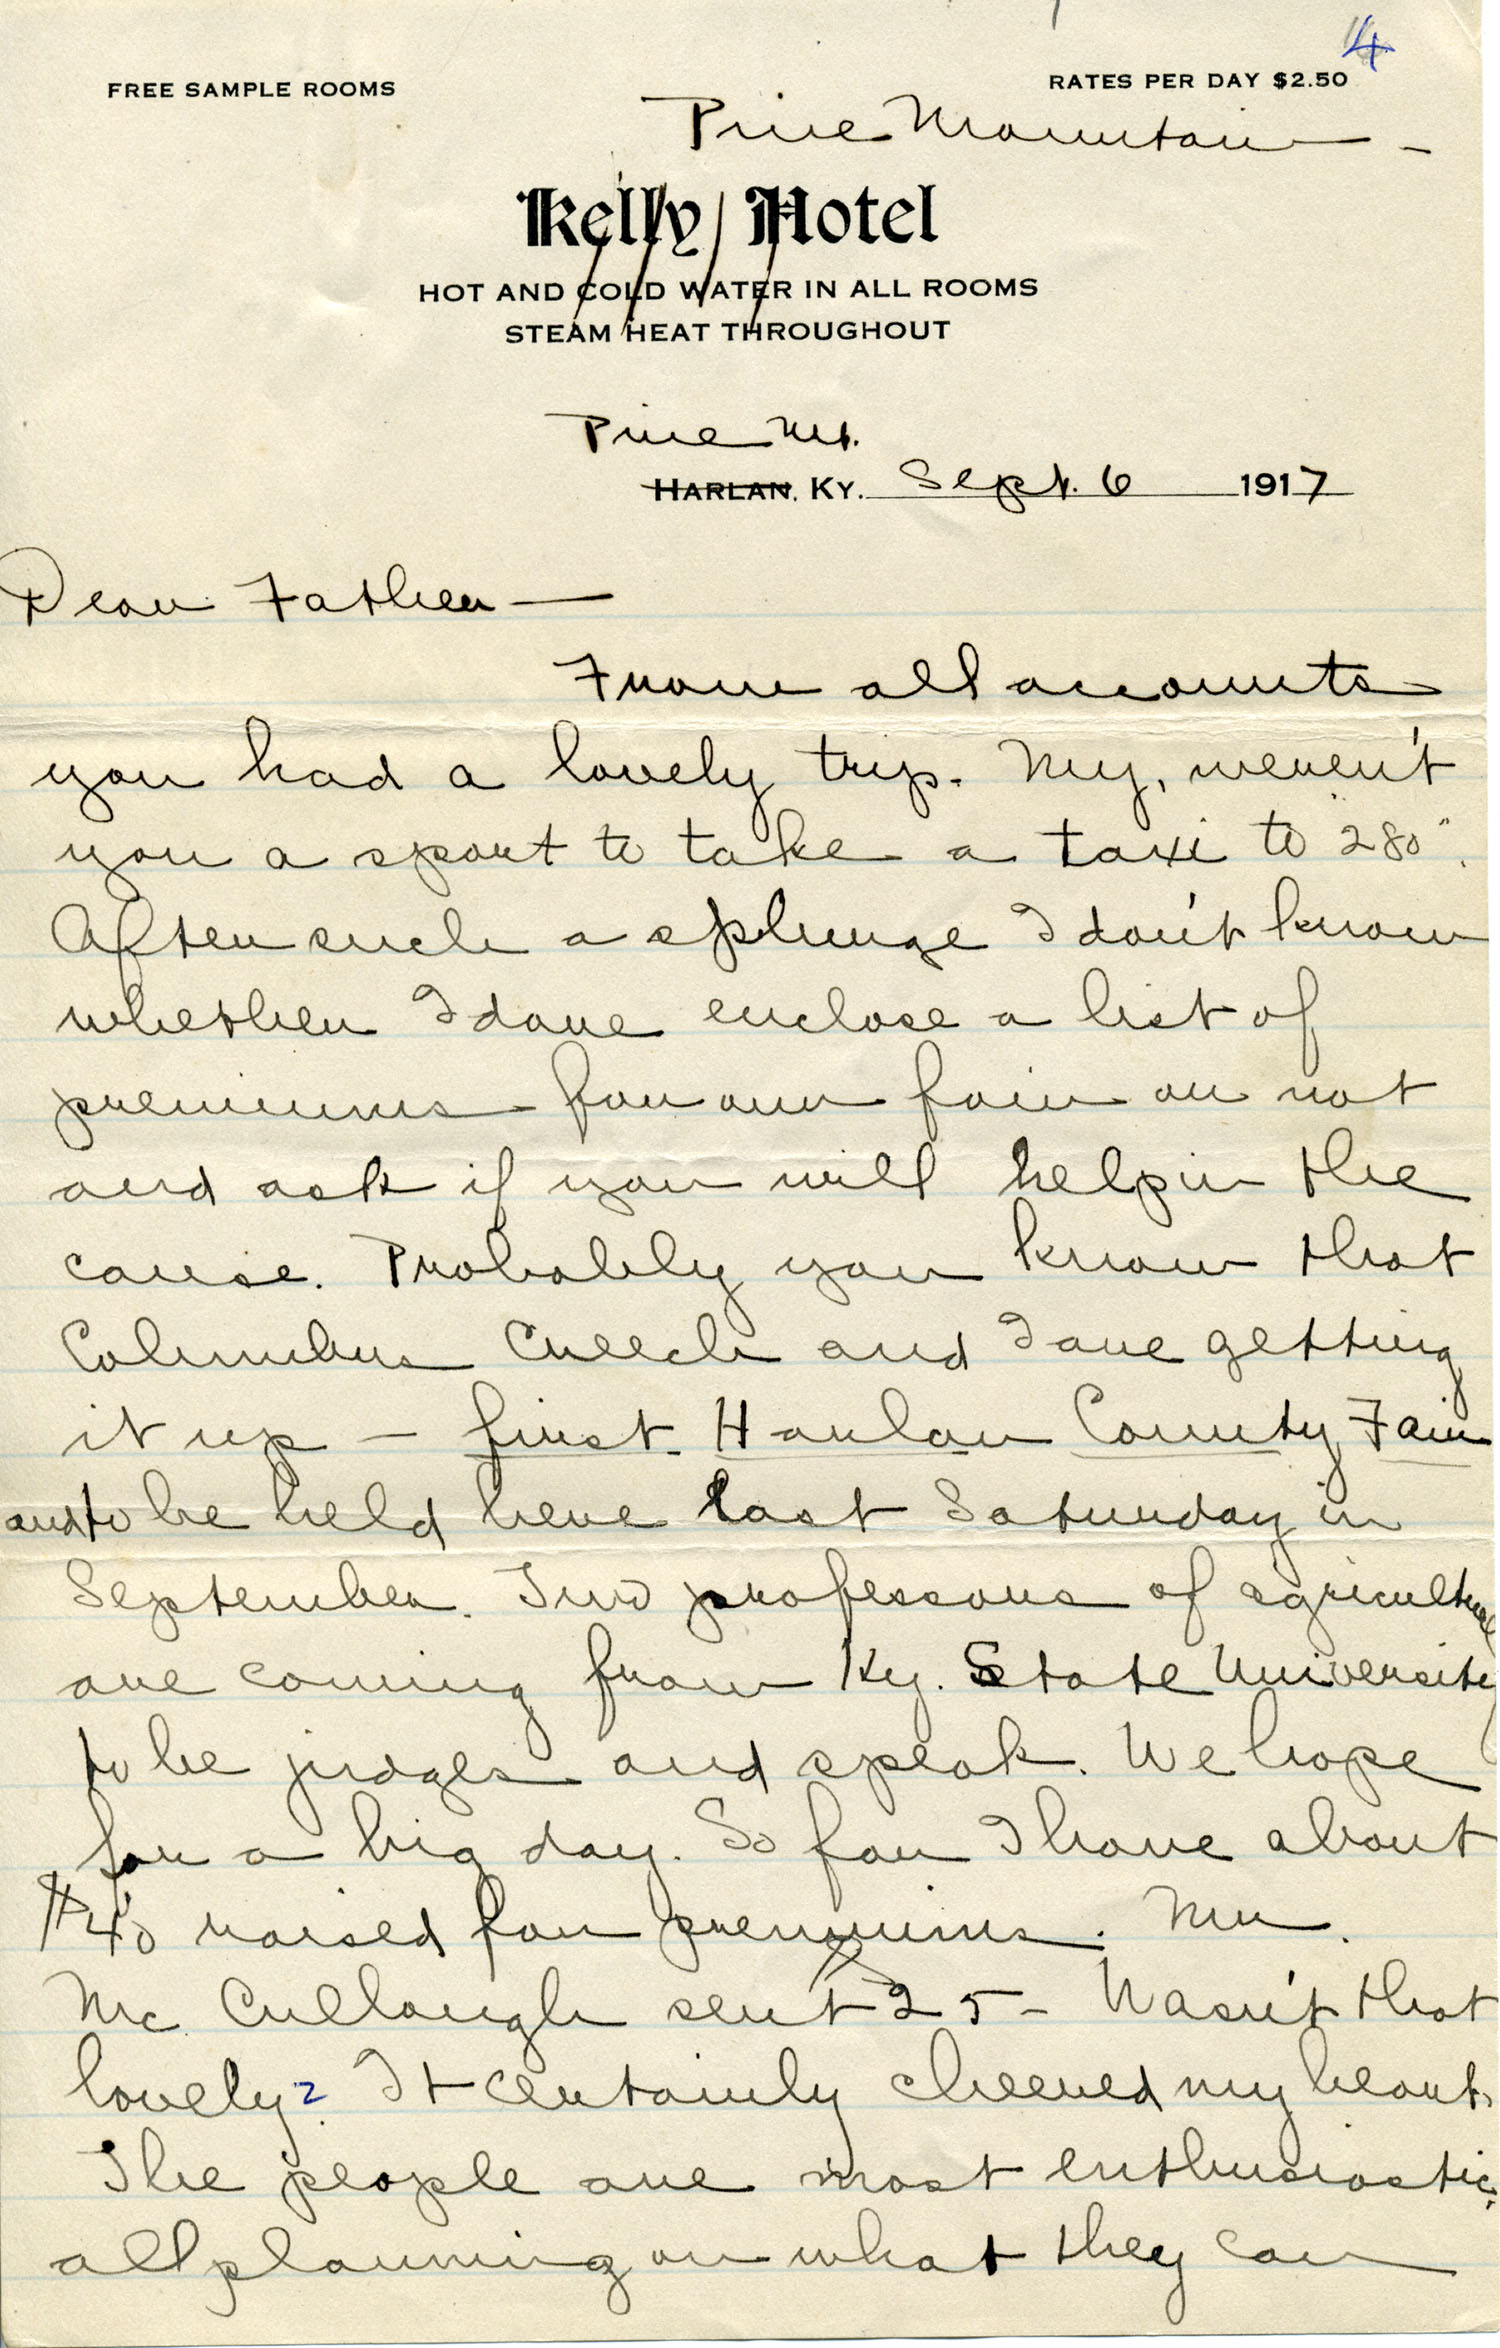 4
FREE SAMPLE ROOMS RATES PER DAY $2.50
Pine Mountain -
Kelly Hotel
HOT AND COLD WATER IN ALL ROOMS
STEAM HEAT THROUGHOUT
Pine Mt.
HARLAN, KY. Sept. 6 1917
Dear Father —
From all accounts
you had a lovely trip. My, weren't
you a sport to take a taxi to 280".
After such a splurge I don't know
whether I dare enclose a list of
premiums for our fair or not
and ask if you will help in the
cause. Probably you know that
Columbus Creech and I are getting
it up – first Harlan County Fair
and to be held here last Saturday in
September. Two professors of agricultural
are coming from Ky. State University
to be judges and speak. We hope
for a big day. So far I have about
$40 raised for premiums. Mr.
Mc Cullough sent $25 – Wasn't that
lovely? It certainly cheered my heart.
The people are most enthusiastic,
all planning on what they can